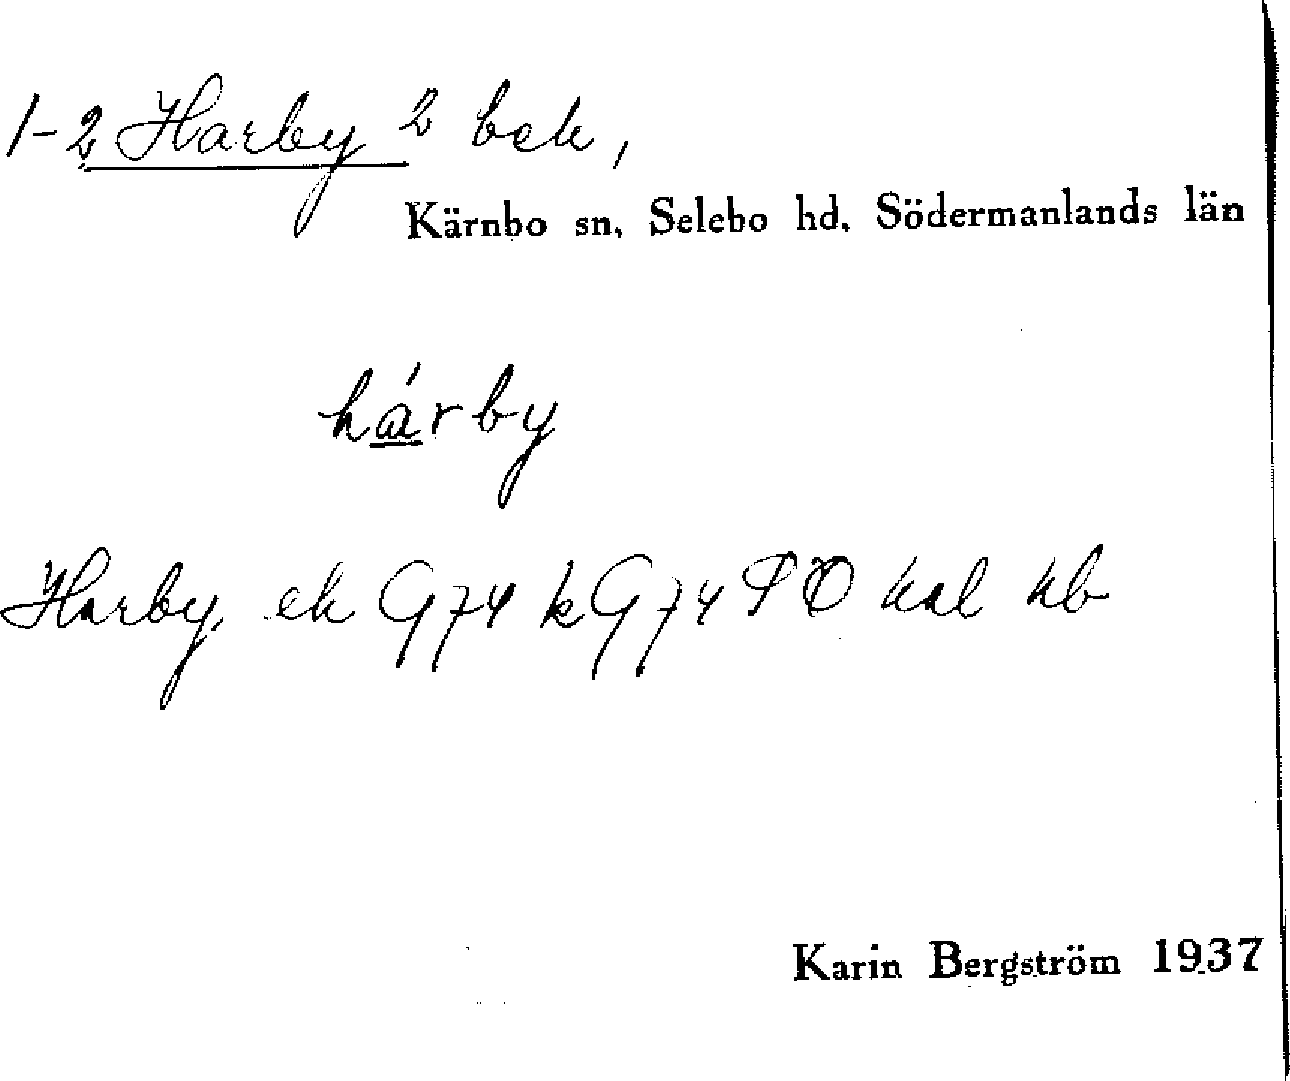 1-2 Harby 2 bck,
Kärnbo sn, Selebo hd, Södermanlands län
hárby
Harby. ek G74 kG74 PO kal kb
Karin Bergström 1937